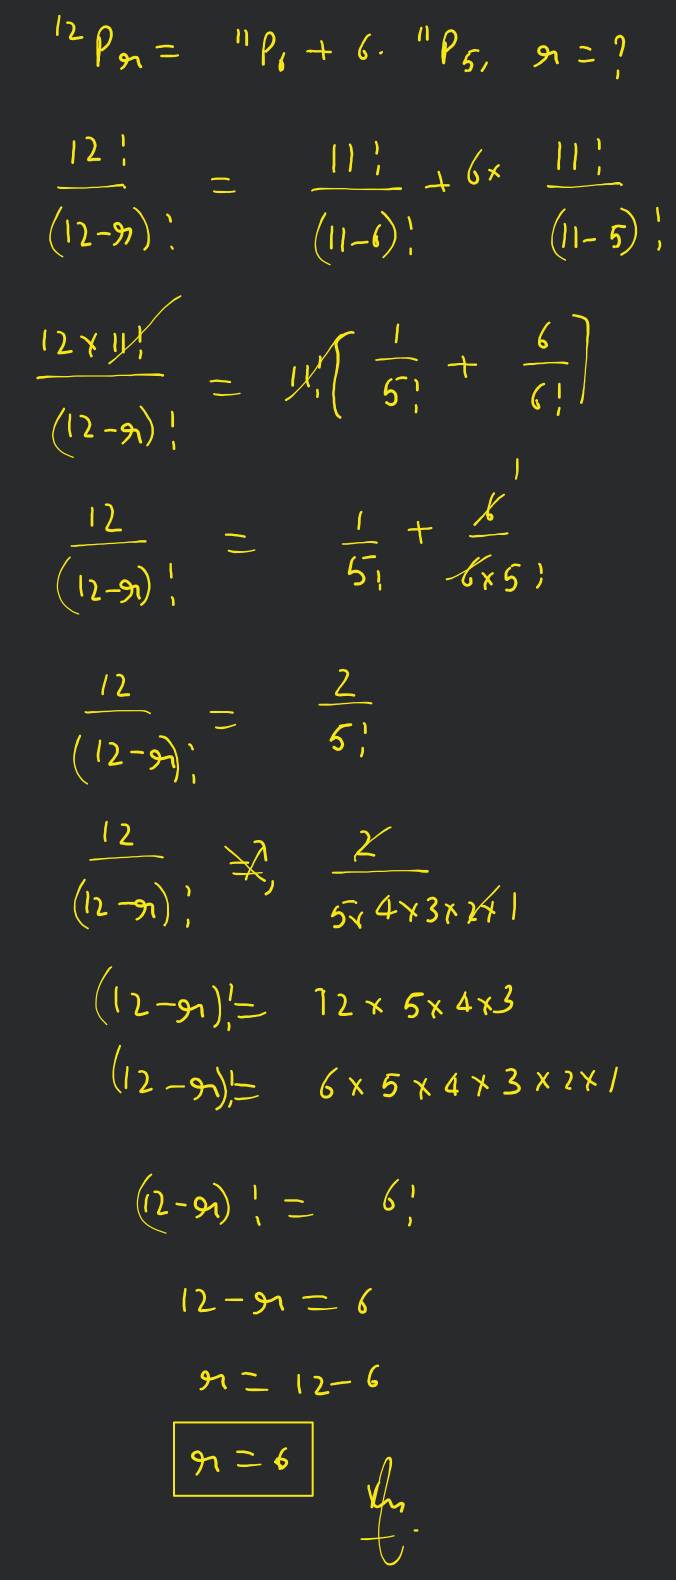 ¹²Pr = ¹¹P₆ + 6. ¹¹P₅, r = ?
12! / (12-r)! = 11! / (11-6)! + 6× 11! / (11-5)!
12×11! / (12-r)! = 11! [ 1/5! + 6/6! ]
12 / (12-r)! = 1/5! + 6 / 6×5! 1
12 / (12-r)! = 2 / 5!
12 / (12-r)! = 2 / 5×4×3×2×1
(12-r)! = 12×5×4×3
(12-r)! = 6×5×4×3×2×1
(12-r)! = 6!
12-r = 6
r = 12-6
r = 6